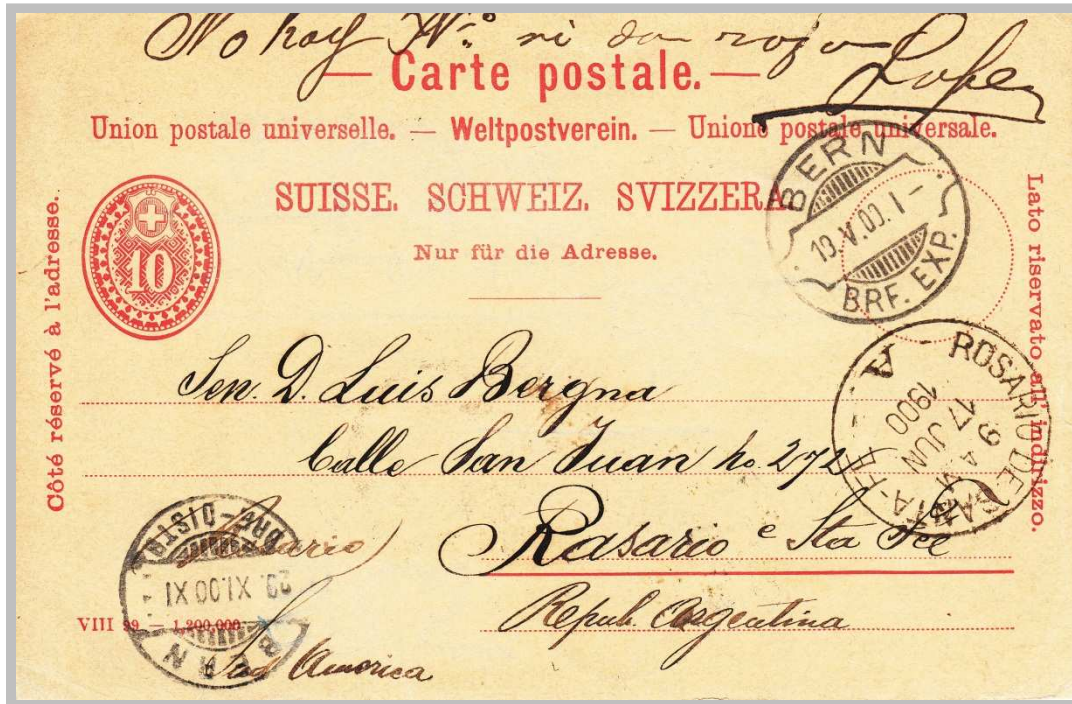 No hay Nº ni dan razon
Lopez
— Carte postale. —
Union postale universelle. — Weltpostverein. — Unione postale universale.
SUISSE. SCHWEIZ. SVIZZERA
Nur für die Adresse.
10
Côté réservé à l'adresse.
Lato riservato all' indirizzo.
BERN
19.V.00.1-
BRF. EXP.
ROSARIO DE SANTA-FE
9 AM
17 JUN
1900
A
Sen. D. Luis Bergna
Calle San Juan no 272
Rasario e Sta Fee
Repub. Argentina
Rosario
Sud America
BRF-DISTR.
29.XI.00.XI
BERN
VIII 99 — 1,200,000